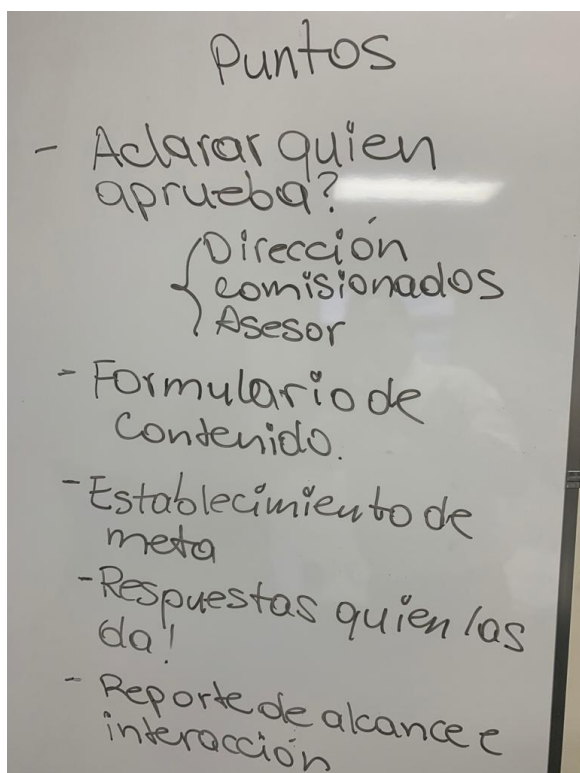 Puntos
- Aclarar quien
aprueba?
Dirección
comisionados
Asesor
- Formulario de
Contenido.
- Establecimiento de
meta
- Respuestas quien las
da!
- Reporte de alcance e
interacción